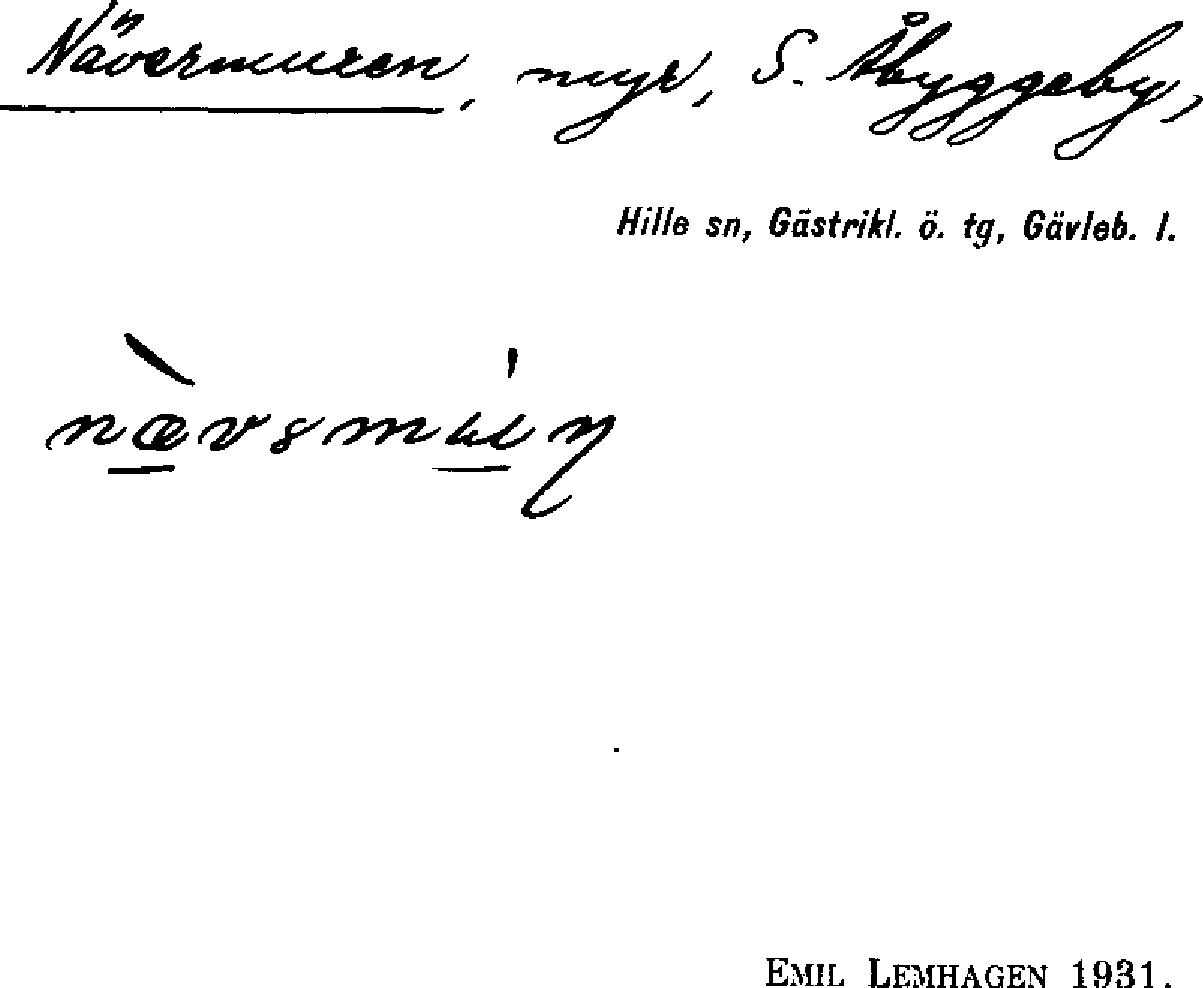 Nävermuren, myr, S. Åbyggeby,
Hille sn, Gästrikl. ö. tg, Gävleb. l.
EMIL LEMHAGEN 1931.